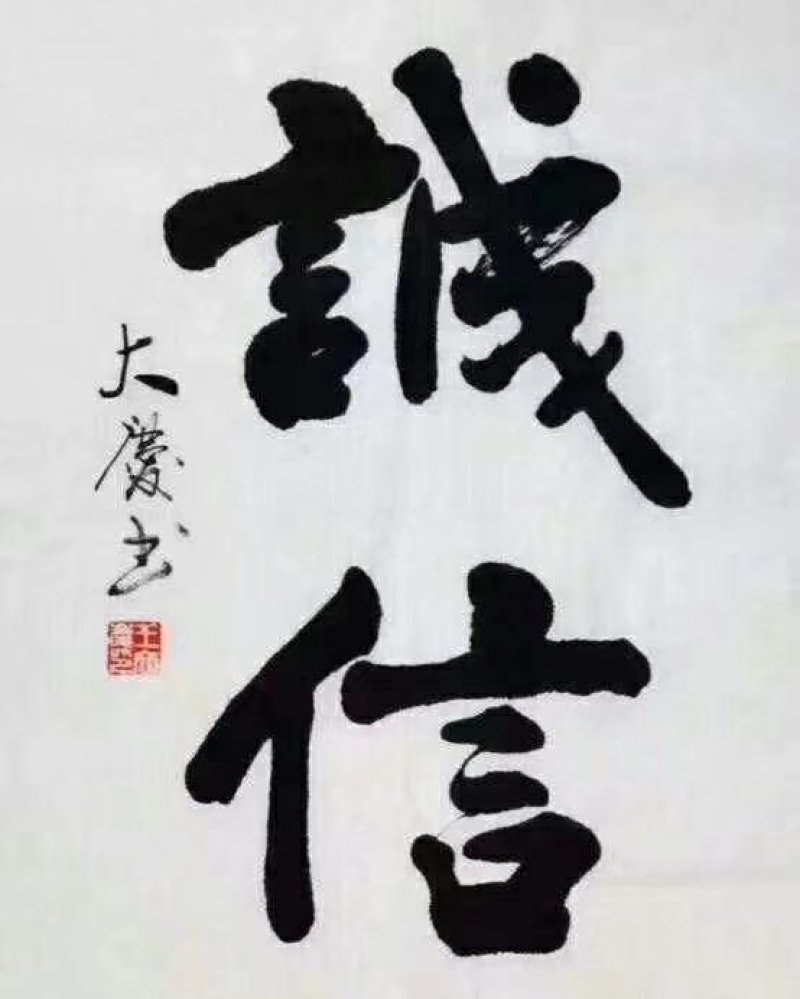 誠信
大慶书